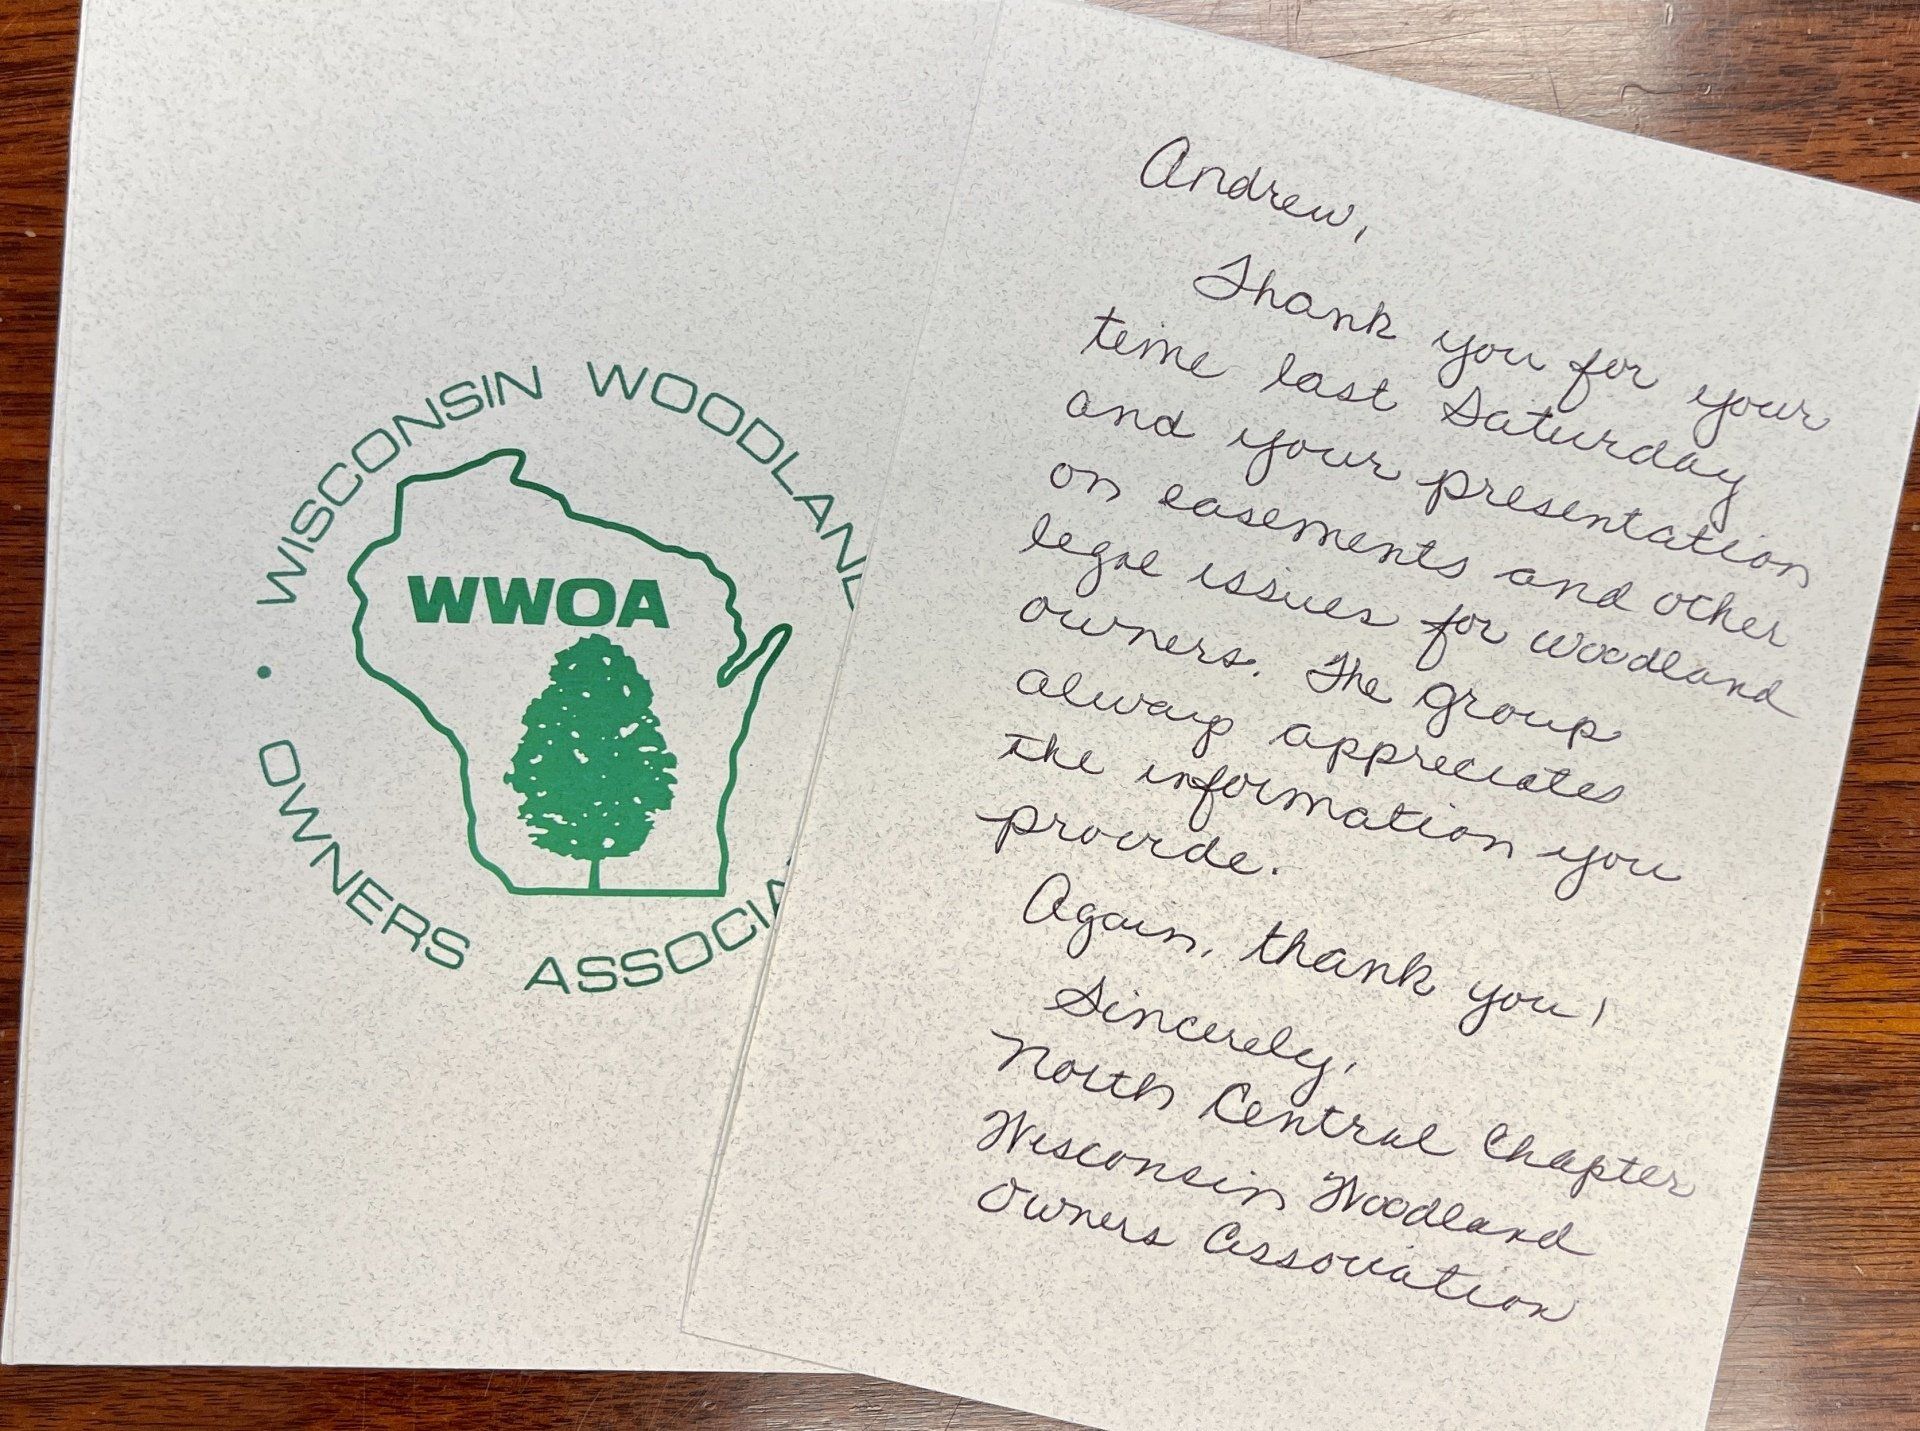 WISCONSIN WOODLAND
WWOA
• OWNERS ASSOCIA
Andrew,
Thank you for your
time last Saturday
and your presentation
on easements and other
legal issues for woodland
owners. The group
always appreciates
the information you
provide.
Again, thank you!
Sincerely,
North Central Chapter
Wisconsin Woodland
Owners Association